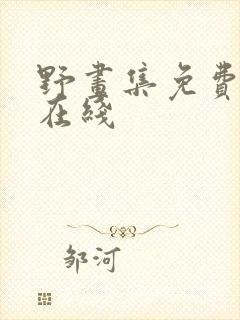 野畫集免費
在綫
邹河